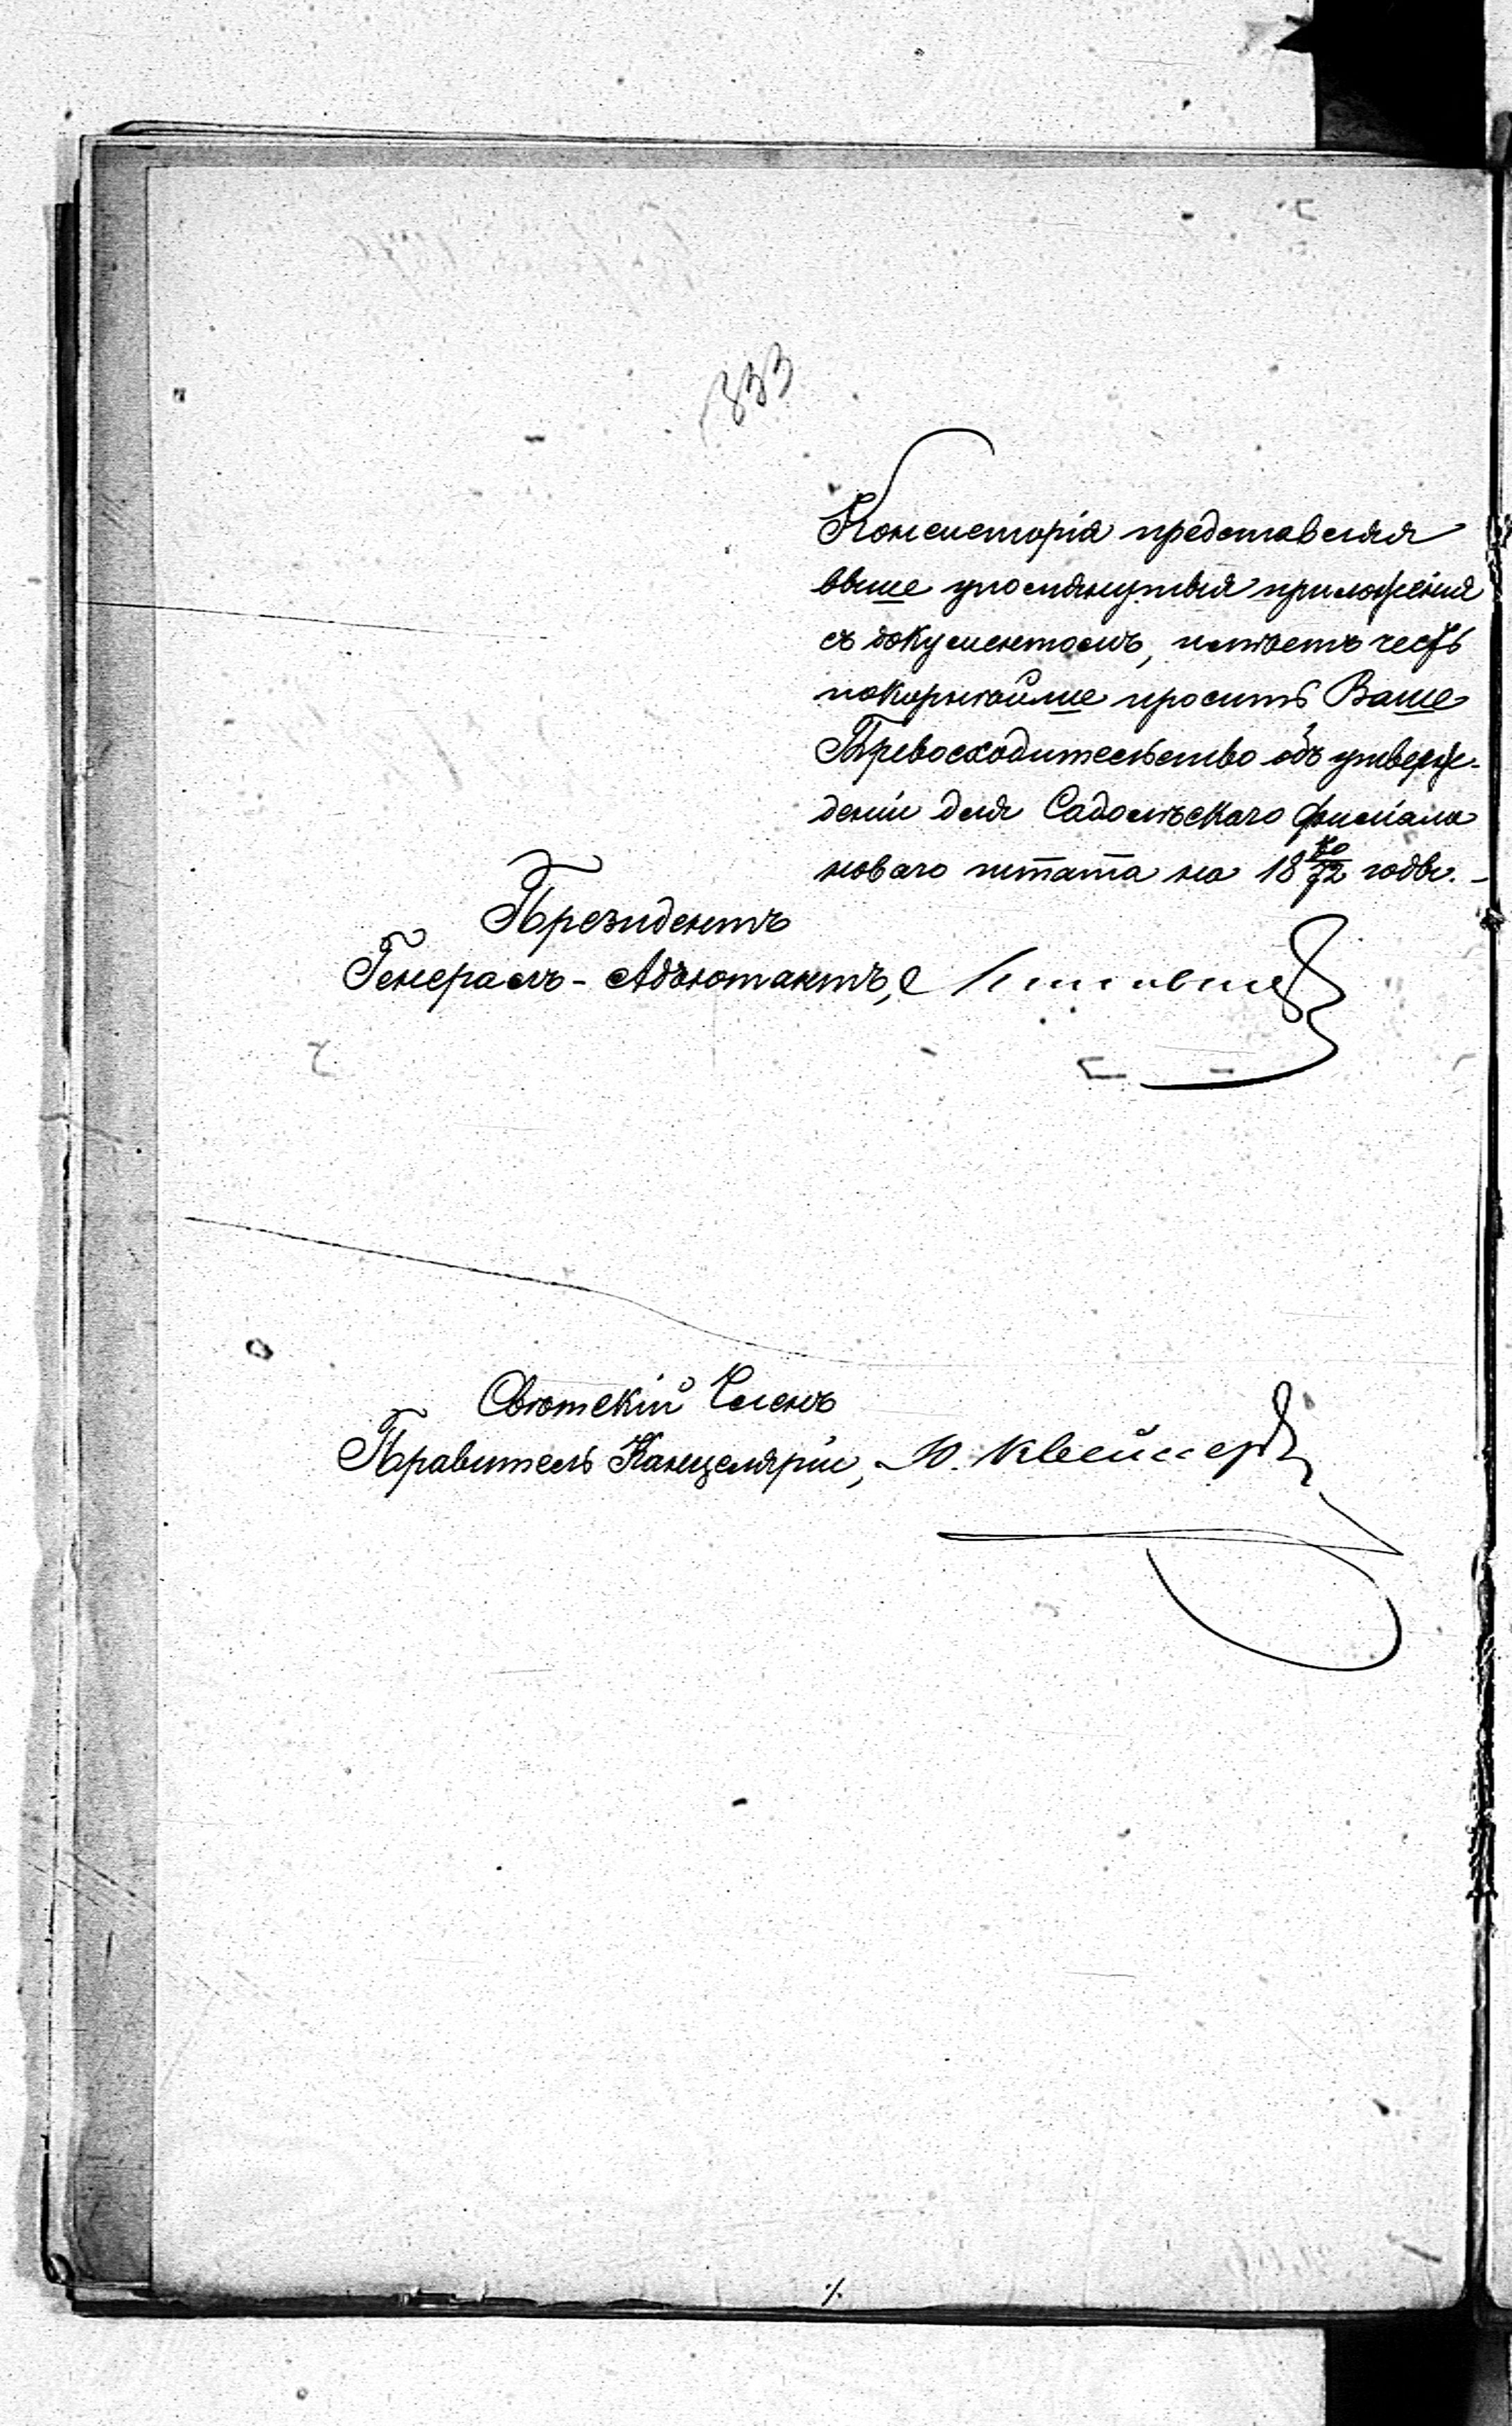 333
Консисторія представляя
выше упомянутыя приложенія
съ документомъ, имѣетъ честь
покорнѣйше просить Ваше
Превосходительство объ утверж-
деніи для Садолъскаго филіала
новаго штата на 18 70/72 годы. –
Президентъ
Генералъ-Адъютантъ,
Свѣтскій Членъ
Правитель Канцеляріи, Ю.